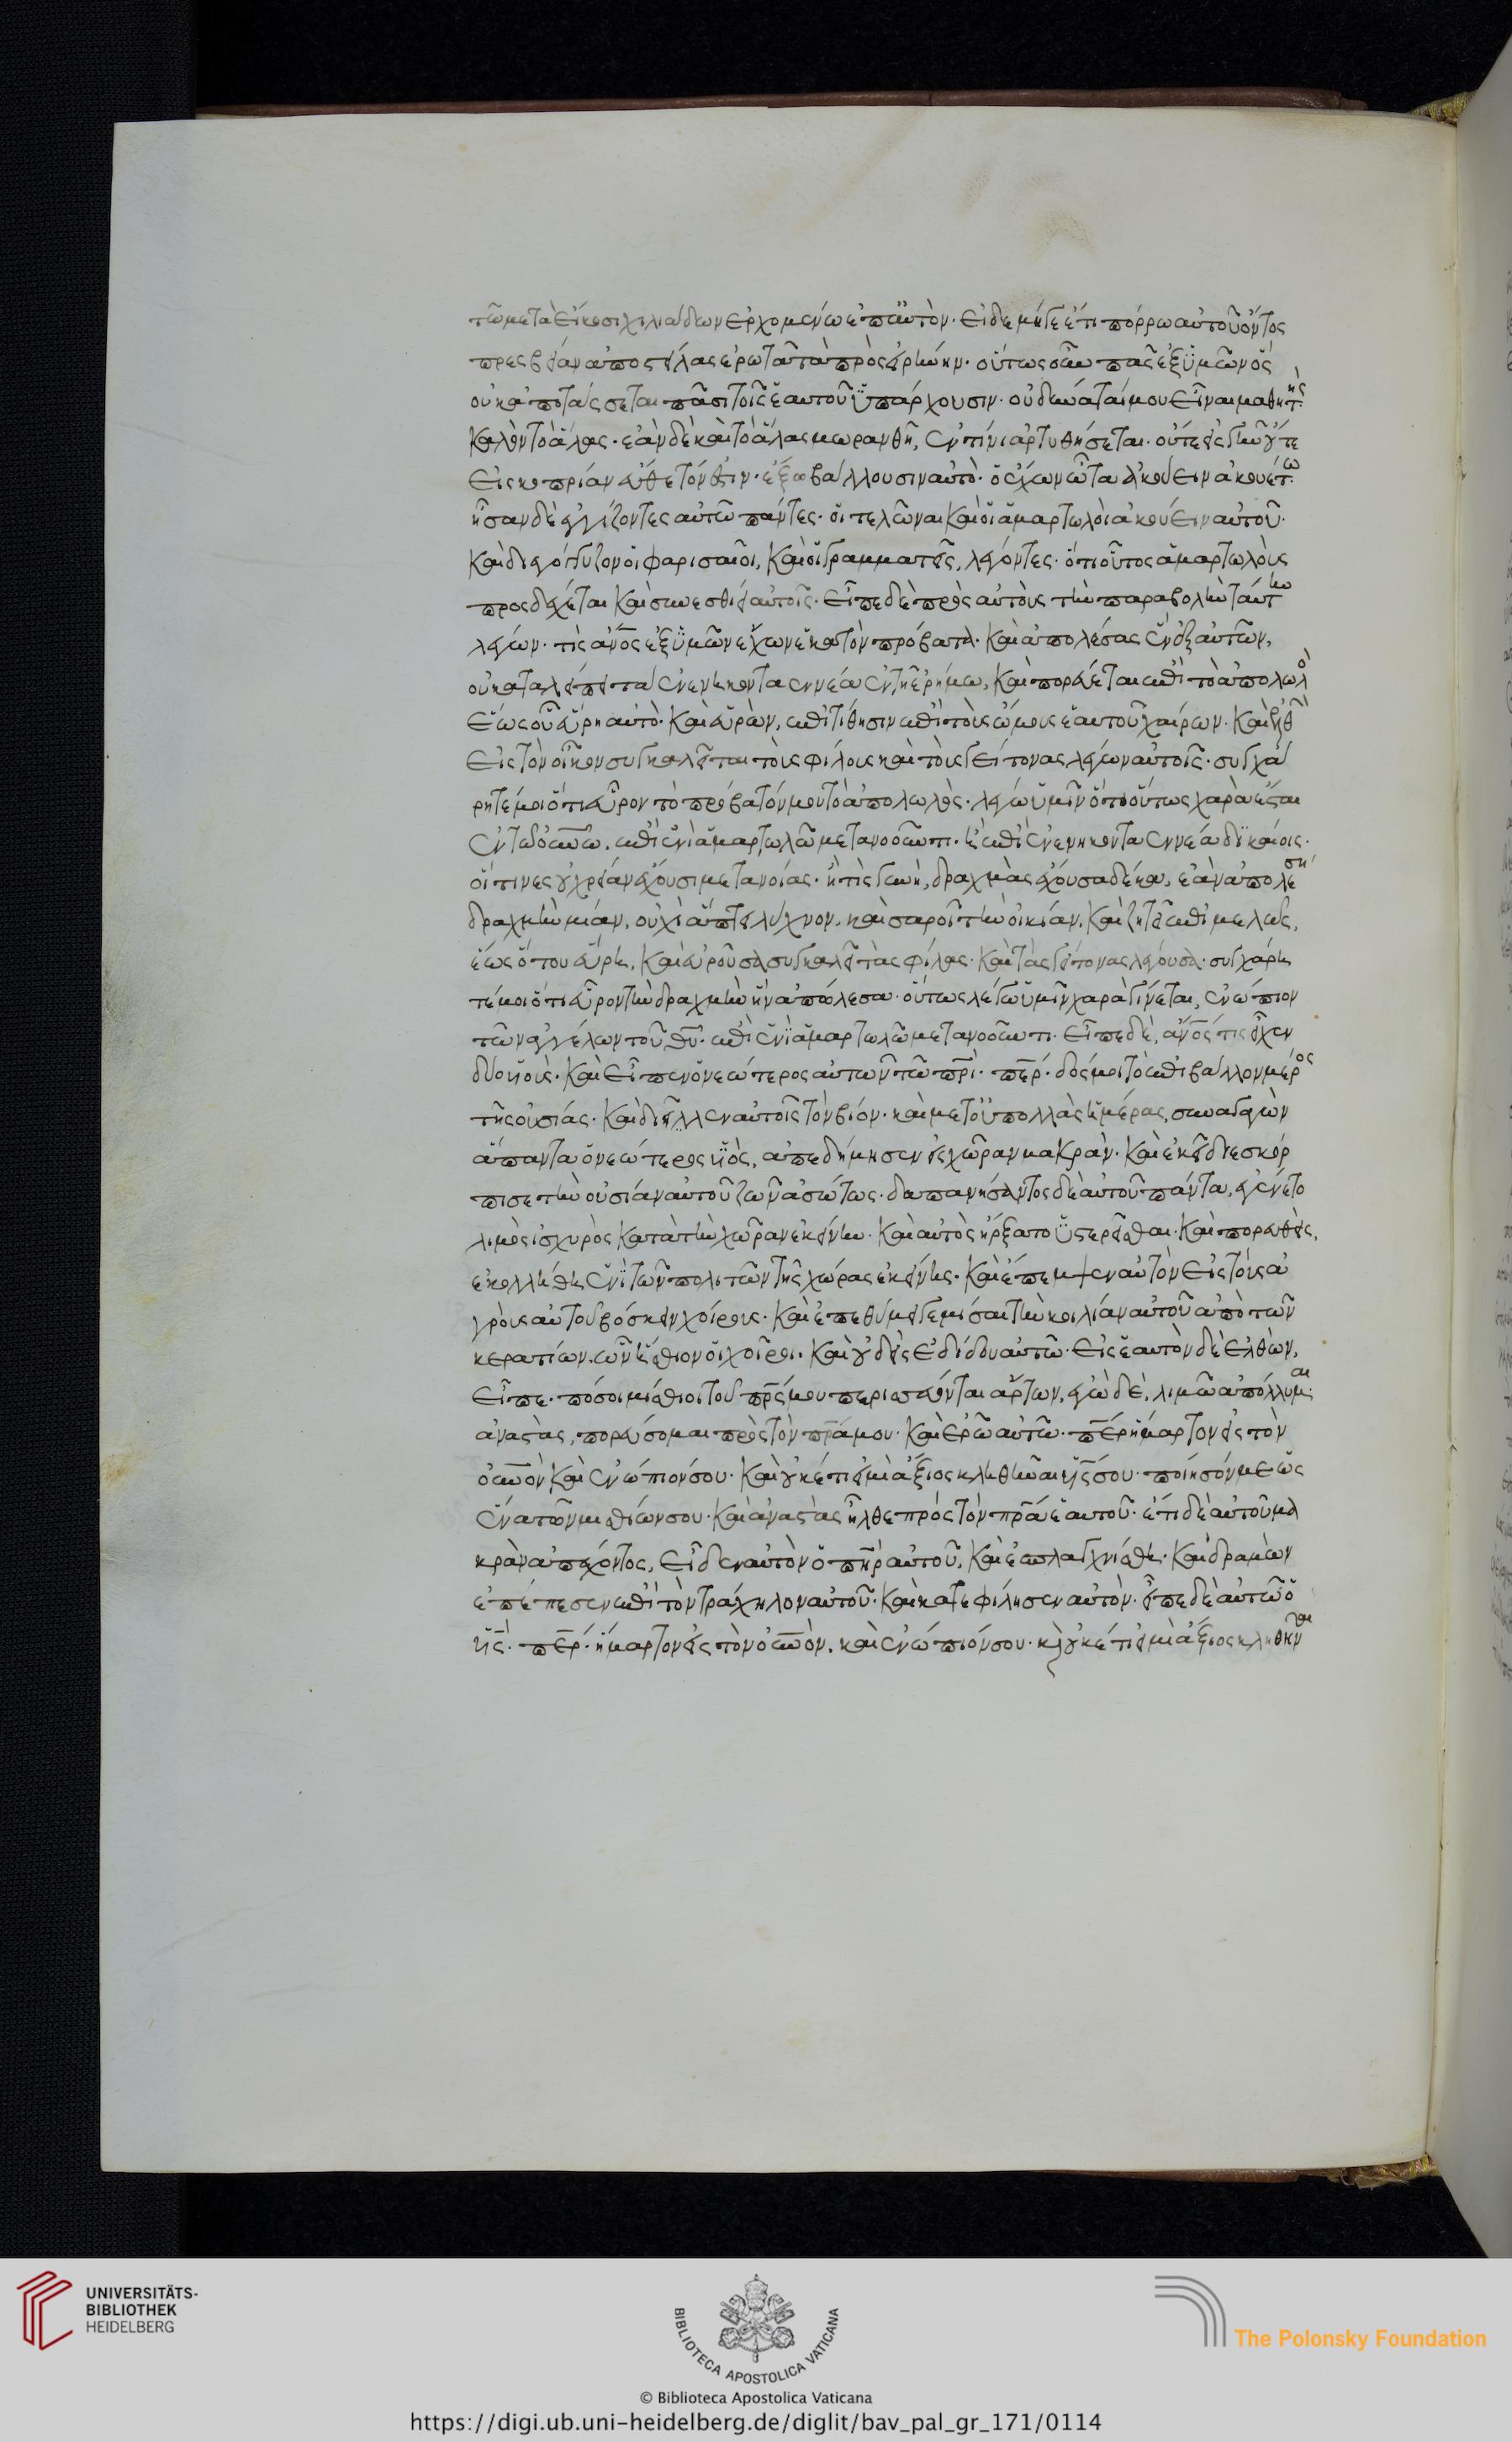 τῶ μετὰ εἴκοσι χιλιάδων ἐρχομένω ἐπ αὐτόν· εἰ δὲ μήγε ἔτι πόρρω αὐτοῦ ὄντος
πρεσβείαν ἀποστείλας ἐρωτᾶ τὰ πρὸς εἰρήνην· οὕτως οὖν πᾶς ἐξ ὑμῶν ὃς
οὐκ ἀποτάσσεται πᾶσι τοῖς ἑαυτοῦ ὑπάρχουσιν· οὐ δύναταί μου εἶναι μαθητής·
καλὸν τὸ ἅλας· ἐὰν δὲ καὶ τὸ ἅλας μωρανθῆ, ἐν τίνι ἀρτυθήσεται· οὔτε εἰς γῆν οὔτε
εἰς κοπρίαν εὔθετόν ἐστιν· ἔξω βάλλουσιν αὐτό· ὁ ἔχων ὦτα ἀκούειν ἀκουέτω
ἦσαν δὲ ἐγγίζοντες αὐτῶ πάντες· οἱ τελῶναι καὶ οἱ ἁμαρτωλοὶ ἀκούειν αὐτοῦ·
καὶ διεγόγγυζον οἱ φαρισαῖοι, καὶ οἱ γραμματεῖς, λέγοντες· ὅτι οὗτος ἁμαρτωλοὺς
προσδέχεται καὶ συνεσθίει αὐτοῖς· εἶπε δὲ πρὸς αὐτοὺς τὴν παραβολὴν ταύτην
λέγων· τίς ἄνος ἐξ ὑμῶν ἔχων ἑκατὸν πρόβατα· καὶ ἀπολέσας ἓν ἐξ αὐτῶν,
οὐ καταλείπει τὰ ἐνενηκοντα εννέα ἐν τῆ ἐρήμω, καὶ πορεύεται ἐπὶ τὸ ἀπολωλὸ
ἕως οὗ εὕρη αὐτό· καὶ εὑρὼν, ἐπιτίθησιν ἐπὶ τοὺς ὤμους ἑαυτοῦ χαίρων· καὶ ἐλθὼν
εἰς τὸν οἶκον συγκαλεῖται τοὺς φίλους καὶ τοὺς γείτονας λέγων αὐτοῖς· συγχά
ρητέ μοι ὅτι εὗρον τὸ πρόβατόν μου τὸ ἀπολωλός· λέγω ὑμῖν ὅτι οὕτως χαρὰ ἔσται
ἐν τῶ ουνω· ἐπὶ ἑνὶ ἁμαρτωλῶ μετανοοῦντι· ἢ ἐπὶ ἐνενηκοντα ἐννέα δικαίοις·
οἵτινες οὐ χρείαν ἔχουσι μετανοίας· ἢ τίς γυνὴ, δραχμὰς ἔχουσα δέκα, ἐὰν ἀπολέση
δραχμὴν μίαν, οὐχὶ ἅπτει λύχνον, καὶ σαροῖ τὴν οἰκίαν, καὶ ζητεῖ ἐπιμελῶς,
ἕως ὅτου εὕρη, καὶ εὑροῦσα συγκαλεῖ τὰς φίλας· καὶ τὰς γείτονας λέγουσα· συγχάρη
τέ μοι ὅτι εὗρον τὴν δραχμὴν ἣν ἀπώλεσα· οὕτως λέγω ὑμῖν χαρὰ γίνεται, ἐνώπιον
τῶν ἀγγέλων τοῦ θυ· ἐπὶ ἑνὶ ἁμαρτωλῶ μετανοοῦντι· εἶπε δὲ, ἄνος τις εἶχεν
δύο υἱούς· καὶ εἶπεν ὁ νεώτερος αὐτῶν τῶ πρι· περ· δός μοι τὸ ἐπιβάλλον μέρος
τῆς οὐσίας· καὶ διεῖλλεν αὐτοῖς τὸν βίον· καὶ μετ οὐ πολλὰς ἡμέρας, συναγαγὼν
ἅπαντα ὁ νεώτερος υἱὸς, ἀπεδήμησεν εἰς χῶραν μακράν· καὶ ἐκεῖ διεσκόρ
πισε τὴν οὐσίαν αὐτοῦ ζῶν ἀσώτως· δαπανήσαντος δὲ αὐτοῦ πάντα, ἐγένετο
λιμὸς ἰσχυρὸς κατὰ τὴν χῶραν ἐκείνην· καὶ αὐτὸς ἤρξατο ὑστερεῖσθαι· καὶ πορευθεὶς,
ἐκολλήθη ἑνὶ τῶν πολιτῶν τῆς χώρας ἐκείνης· καὶ ἔπεμψεν αὐτὸν εἰς τοὺς ἀ
γροὺς αὐτοῦ βόσκειν χοίρους· καὶ ἐπεθύμει γεμίσαι τὴν κοιλίαν αὐτοῦ ἀπὸ τῶν
κερατίων ὧν ἤσθιον οἱ χοῖροι· καὶ οὐδεὶς ἐδίδου αὐτῶ· εἰς ἑαυτὸν δὲ ἐλθὼν,
εἶπε· πόσοι μίσθιοι τοῦ πρς μου περισσεύονται ἄρτων, ἐγὼ δὲ, λιμῶ ἀπόλλυμαι·
ἀναστὰς, πορεύσομαι πρὸς τὸν πρα μου· καὶ ἐρῶ αὐτῶ· περ ἥμαρτον εἰς τὸν
ουνον καὶ ἐνώπιόν σου· καὶ οὐκέτι εἰμὶ ἄξιος κληθῆναι υς σου· ποίησόν με ὡς
ἕνα τῶν μισθίων σου· καὶ ἀναστὰς ἦλθε πρὸς τὸν πρα ἑαυτοῦ· ἔτι δὲ αὐτοῦ μα
κρὰν ἀπέχοντος, εἶδεν αὐτὸν ὁ πηρ αὐτοῦ, καὶ ἐσπλαγχνίσθη· καὶ δραμὼν
ἐπέπεσεν ἐπὶ τὸν τράχηλον αὐτοῦ· καὶ κατεφίλησεν αὐτόν· εἶπε δὲ αὐτῶ ὁ
υς· περ· ἥμαρτον εἰς τὸν ουνον, καὶ ἐνώπιόν σου· κὶ οὐκέτι εἰμὶ ἄξιος κληθῆναι
UNIVERSITÄTS-
BIBLIOTHEK
HEIDELBERG
BIBLIOTECA APOSTOLICA VATICANA
The Polonsky Foundation
© Biblioteca Apostolica Vaticana
https://digi.ub.uni-heidelberg.de/diglit/bav_pal_gr_171/0114